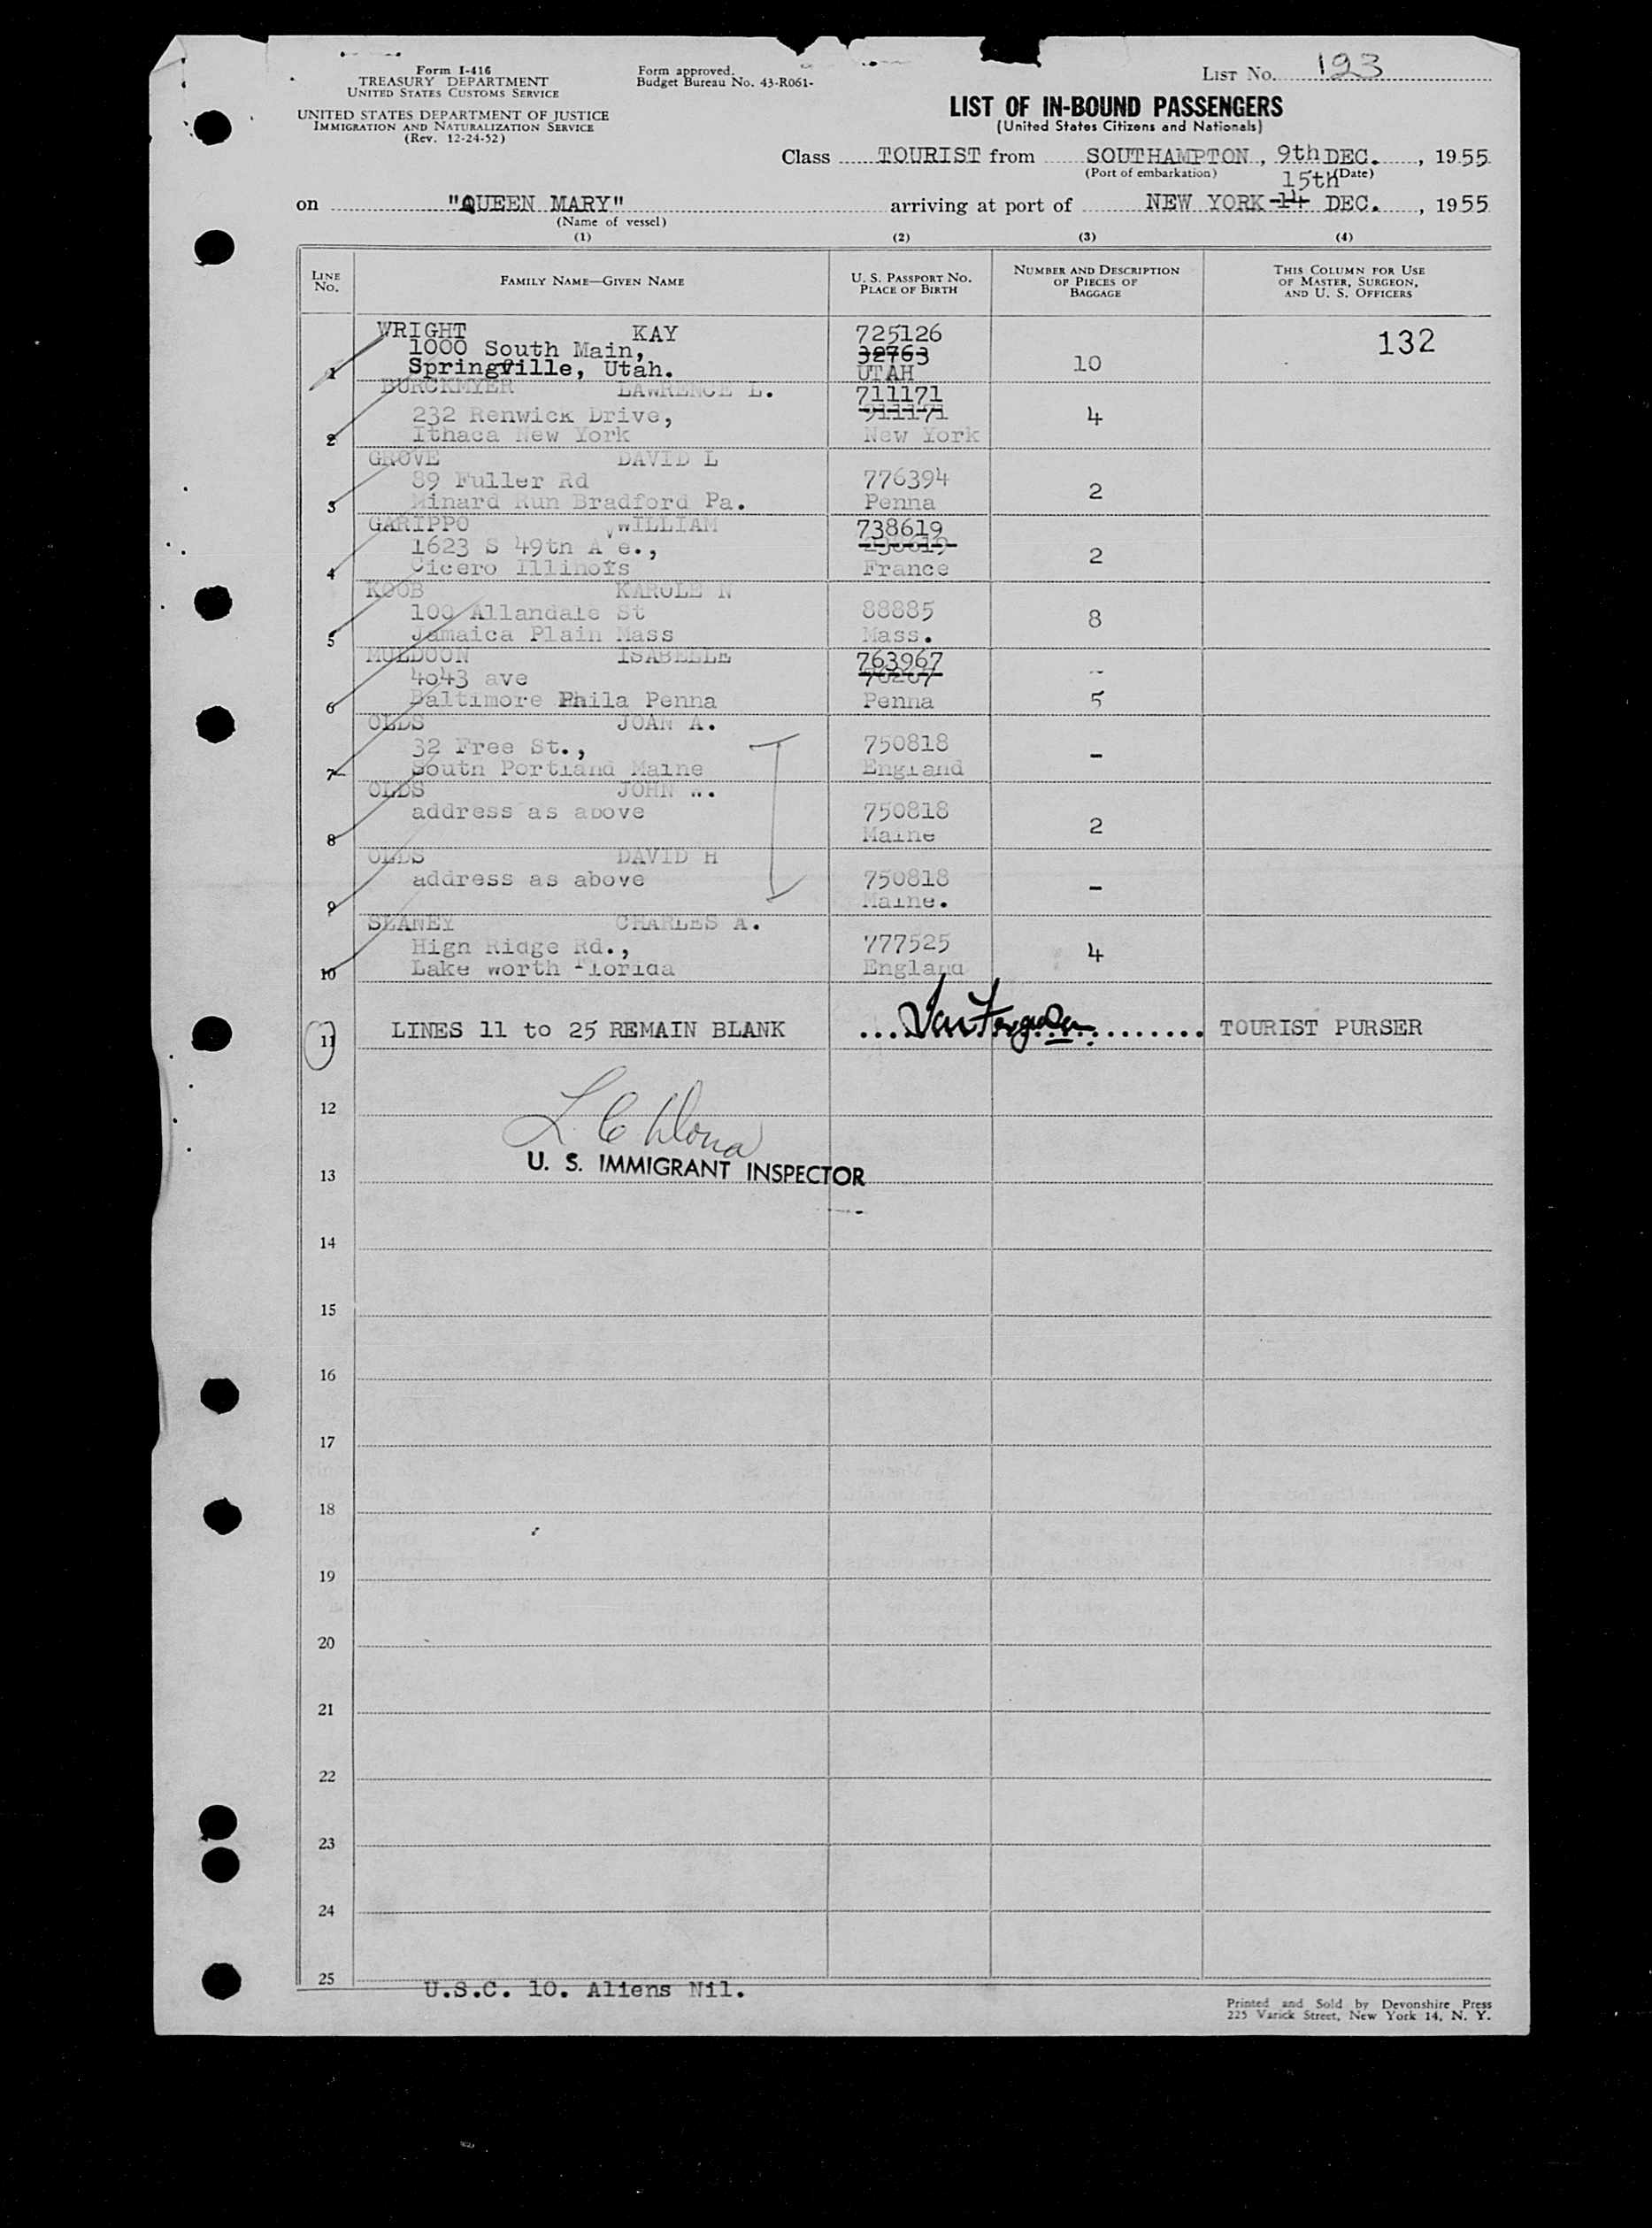 Form I-416
TREASURY DEPARTMENT
UNITED STATES CUSTOMS SERVICE
UNITED STATES DEPARTMENT OF JUSTICE
IMMIGRATION AND NATURALIZATION SERVICE
(Rev. 12-24-52)
Form approved.
Budget Bureau No. 43-R061-
LIST No. 193
LIST OF IN-BOUND PASSENGERS
(United States Citizens and Nationals)
Class TOURIST from SOUTHAMPTON, 9th DEC., 1955
(Port of embarkation) (Date)
15th
on "QUEEN MARY" arriving at port of NEW YORK 14 DEC., 1955
(Name of vessel)
(1) (2) (3) (4)
LINE No. FAMILY NAME—GIVEN NAME U. S. PASSPORT NO. PLACE OF BIRTH NUMBER AND DESCRIPTION OF PIECES OF BAGGAGE THIS COLUMN FOR USE OF MASTER, SURGEON, AND U. S. OFFICERS
WRIGHT KAY 725126 132
1000 South Main, 32763
1 Springville, Utah. UTAH 10
BURCKMYER LAWRENCE L. 711171
232 Renwick Drive, 911171 4
2 Ithaca New York New York
GROVE DAVID L
89 Fuller Rd 776394
3 Minard Run Bradford Pa. Penna 2
GARIPPO WILLIAM 738619
1623 S 49th A e., 238619
4 Cicero Illinois France 2
KOOB KAROLE N
100 Allandale St 88885 8
5 Jamaica Plain Mass Mass.
MULDOON ISABELLE 763967
4043 ave 76267 -
6 Baltimore Phila Penna Penna 5
OLDS JOAN A.
32 Free St., 750818 -
7 South Portland Maine England
OLDS JOHN W.
address as above 750818 2
8 Maine
OLDS DAVID H
address as above 750818 -
9 Maine.
SEANEY CHARLES A.
High Ridge Rd., 777525 4
10 Lake worth Florida England
11 LINES 11 to 25 REMAIN BLANK Ian Ferguson TOURIST PURSER
12
U. S. IMMIGRANT INSPECTOR
13
14
15
16
17
18
19
20
21
22
23
24
25
U.S.C. 10. Aliens Nil.
Printed and Sold by Devonshire Press
225 Varick Street, New York 14, N. Y.